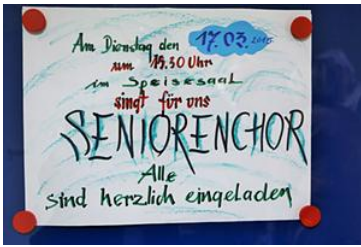 Am Dienstag den 17.03.2015
um 15.30 Uhr
im Speisesaal
singt für uns
SENIORENCHOR
Alle
sind herzlich eingeladen